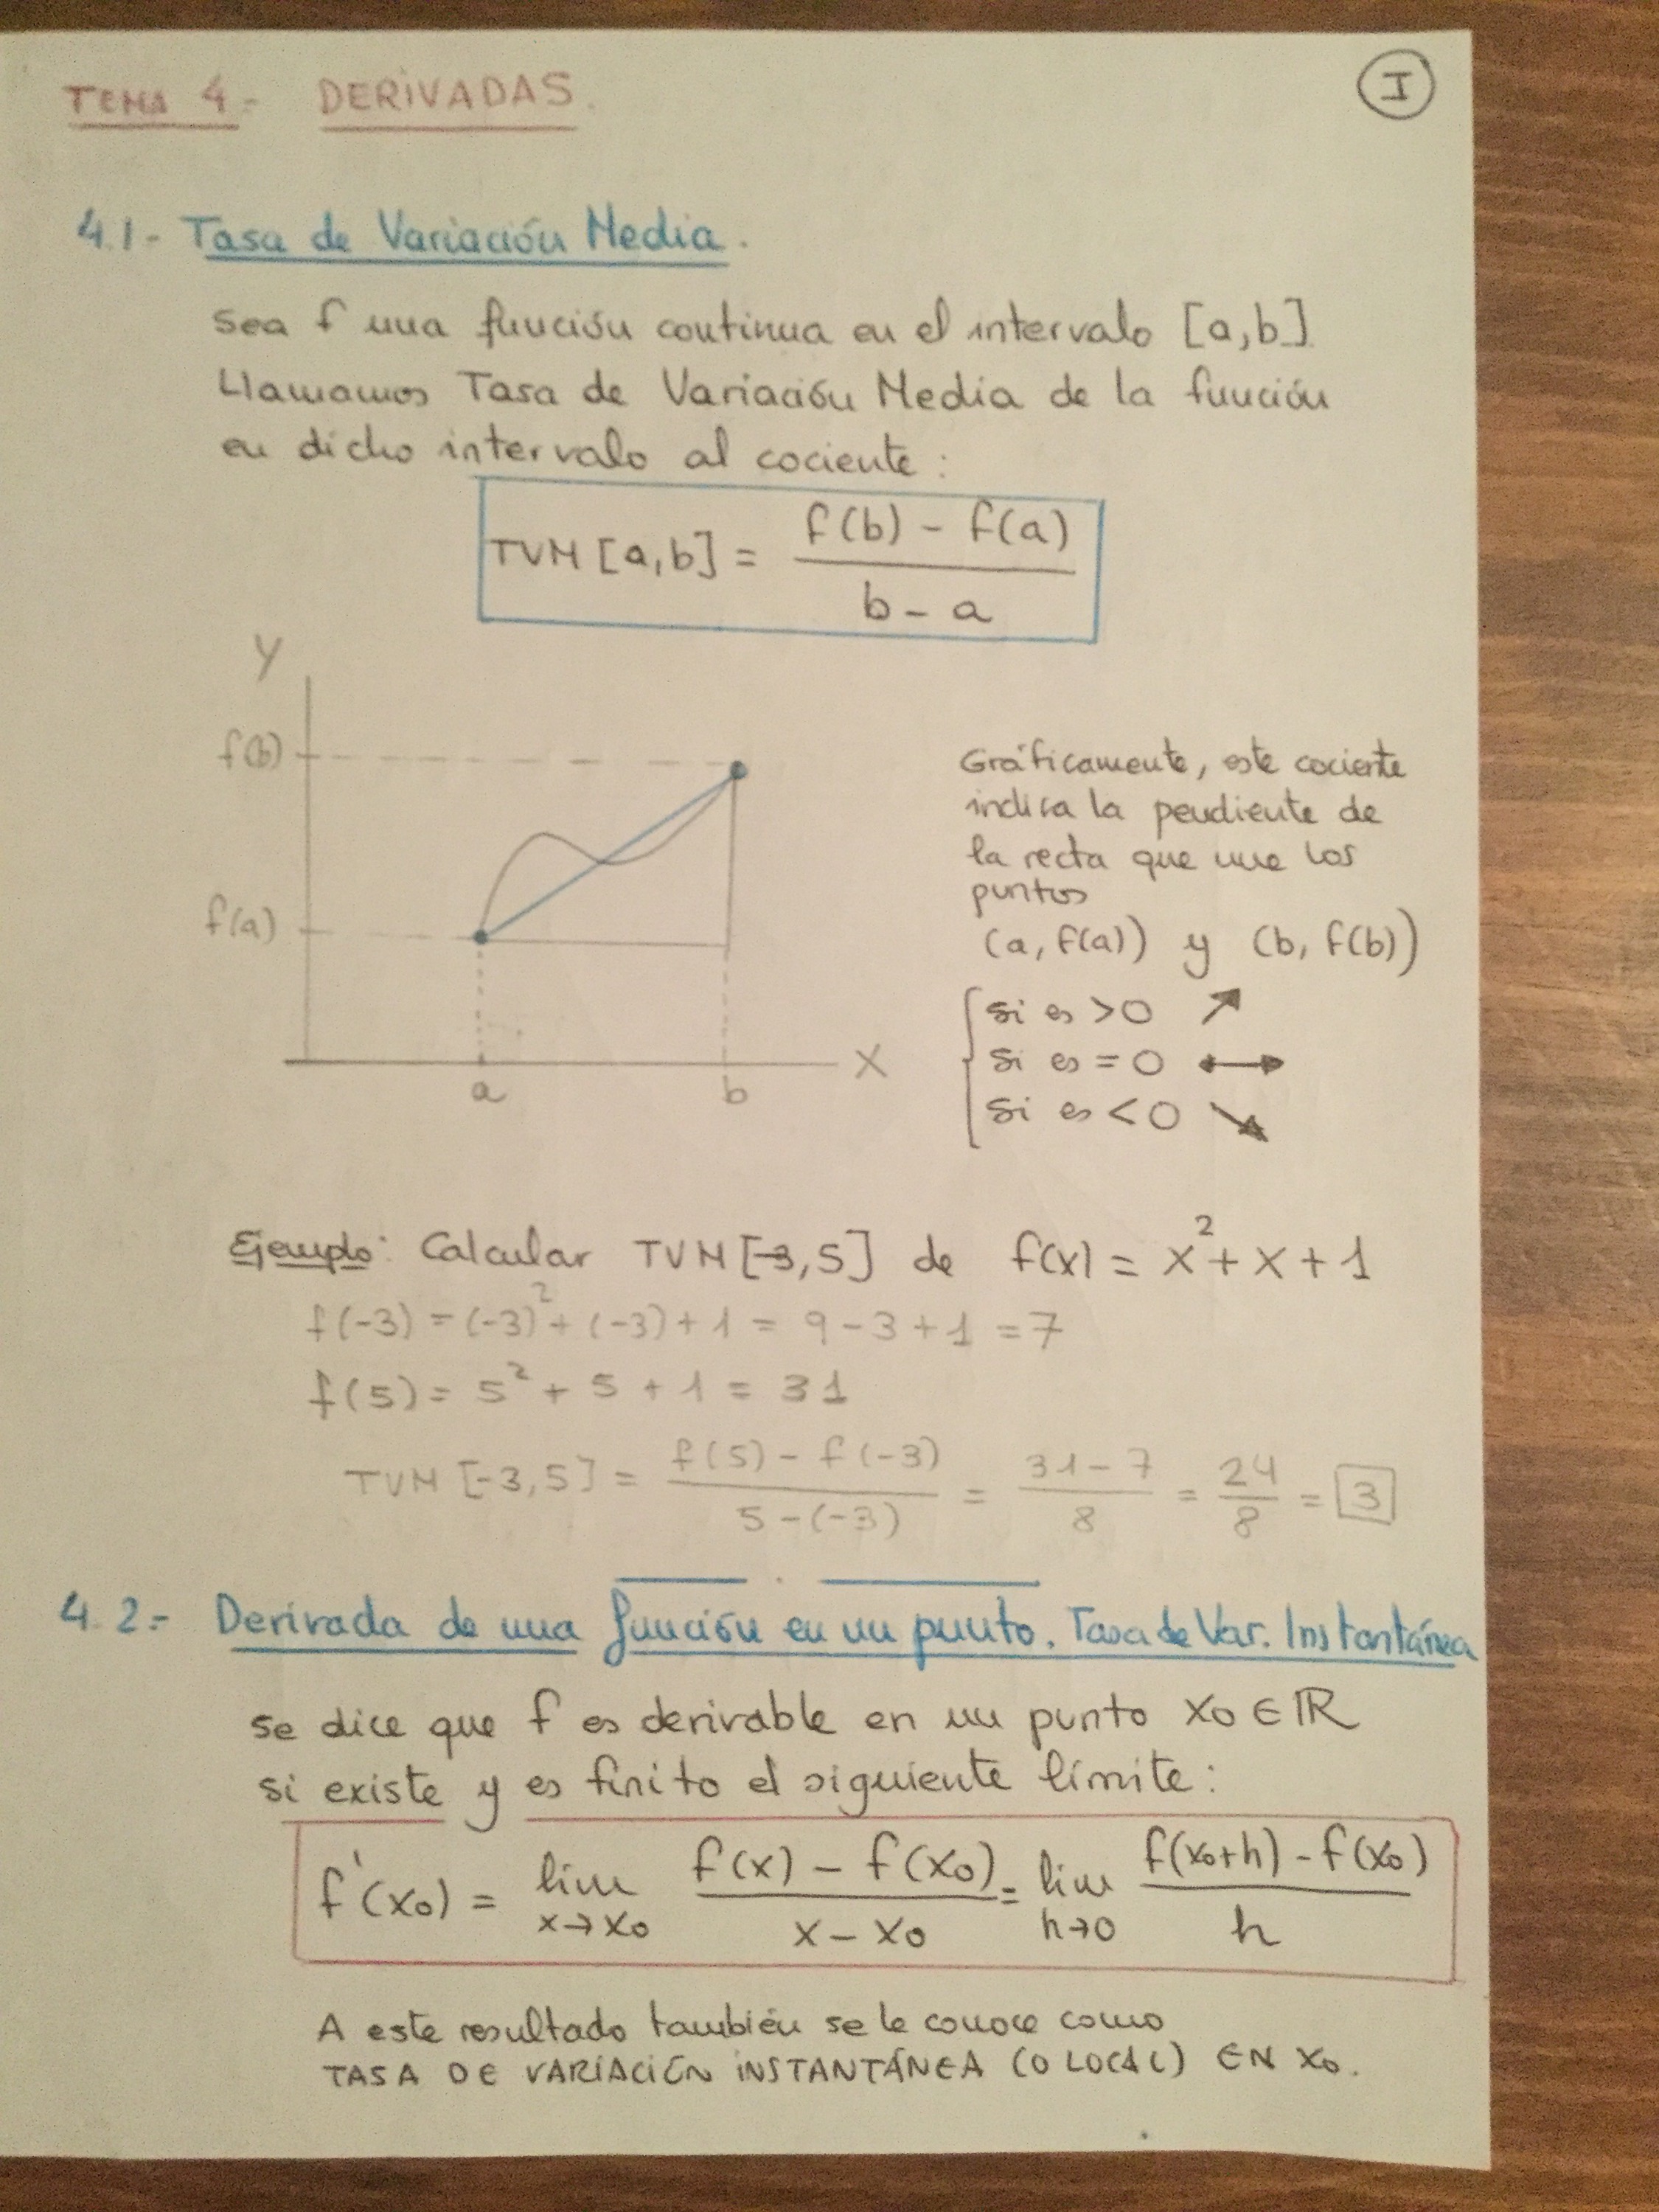 I
TEMA 4.- DERIVADAS.
4.1- Tasa de Variación Media.
Sea f una función continua en el intervalo [a,b]
Llamamos Tasa de Variación Media de la función
en dicho intervalo al cociente:
TVM [a,b] = (f(b) - f(a)) / (b - a)
Y
f(b)
f(a)
a
b
X
Gráficamente, este cociente
indica la pendiente de
la recta que une los
puntos
(a, f(a)) y (b, f(b))
si es >0 ↗
si es = 0 ↔
si es <0 ↘
Ejemplo: Calcular TVM [-3,5] de f(x) = x² + x + 1
f(-3) = (-3)² + (-3) + 1 = 9 - 3 + 1 = 7
f(5) = 5² + 5 + 1 = 31
TVM [-3,5] = (f(5) - f(-3)) / (5 - (-3)) = (31 - 7) / 8 = 24/8 = 3
4.2.- Derivada de una función en un punto. Tasa de Var. Instantánea
se dice que f es derivable en un punto x₀ ∈ ℝ
si existe y es finito el siguiente límite:
f'(x₀) = lim x→x₀ (f(x) - f(x₀)) / (x - x₀) = lim h→0 (f(x₀+h) - f(x₀)) / h
A este resultado también se le conoce como
TASA DE VARIACIÓN INSTANTÁNEA (O LOCAL) EN x₀.